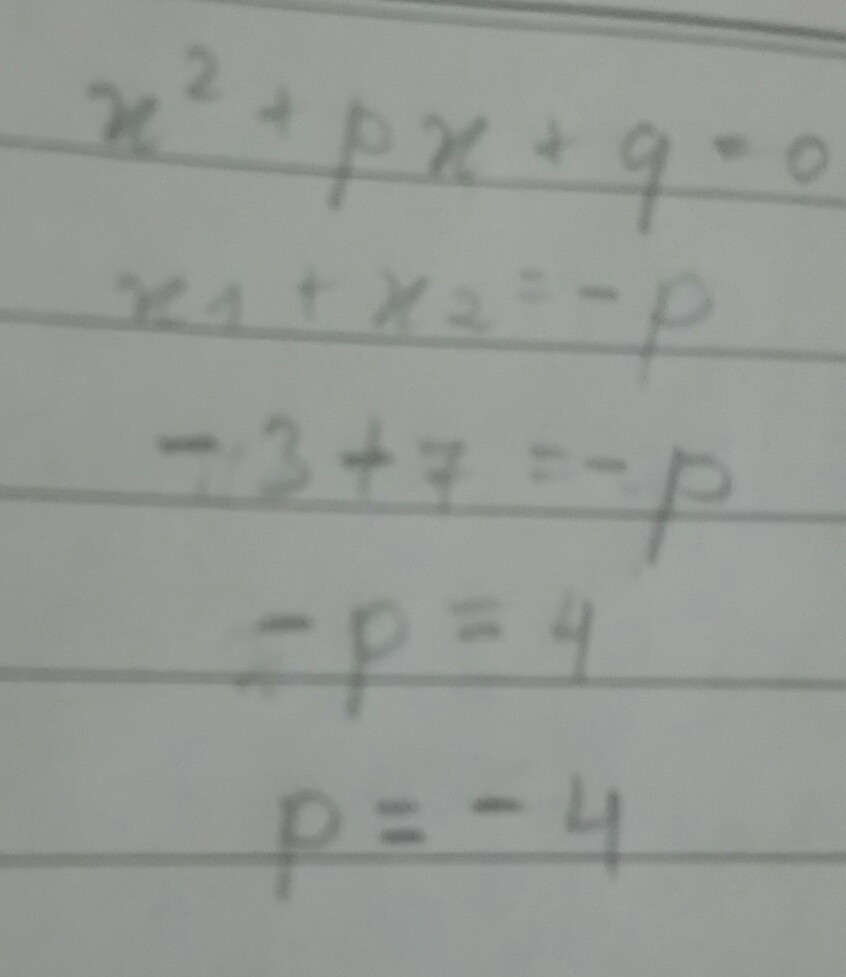 x² + px + q = 0
x₁ + x₂ = -p
-3 + 7 = -p
-p = 4
p = -4